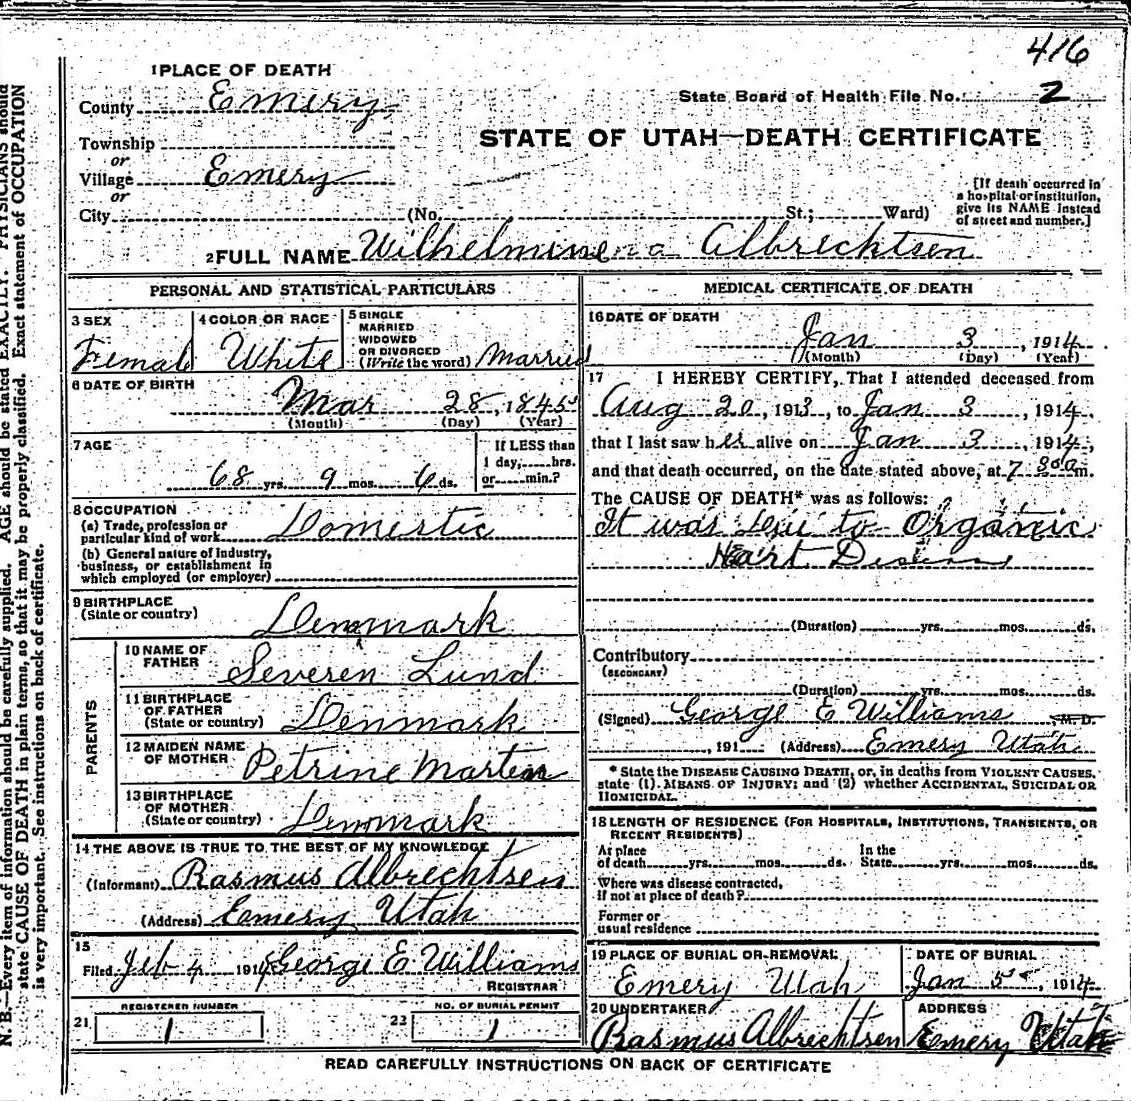 416
1 PLACE OF DEATH
County Emery
State Board of Health File No. 2
Township
or
Village Emery
or
City (No. St.; Ward)
STATE OF UTAH—DEATH CERTIFICATE
[If death occurred in
a hospital or institution,
give its NAME instead
of street and number.]
2 FULL NAME Wilhelminena Albrechtsen
PERSONAL AND STATISTICAL PARTICULARS
3 SEX
Female
4 COLOR OR RACE
White
5 SINGLE
MARRIED
WIDOWED
OR DIVORCED
(Write the word) Married
6 DATE OF BIRTH
Mar 28, 1845
(Month) (Day) (Year)
7 AGE
68 yrs. 9 mos. 6 ds.
If LESS than
1 day, hrs.
or min.?
8 OCCUPATION
(a) Trade, profession or
particular kind of work Domestic
(b) General nature of industry,
business, or establishment in
which employed (or employer)
9 BIRTHPLACE
(State or country) Denmark
PARENTS
10 NAME OF
FATHER Severen Lund
11 BIRTHPLACE
OF FATHER
(State or country) Denmark
12 MAIDEN NAME
OF MOTHER Petrine Marten
13 BIRTHPLACE
OF MOTHER
(State or country) Denmark
14 THE ABOVE IS TRUE TO THE BEST OF MY KNOWLEDGE
(Informant) Rasmus Albrechtsen
(Address) Emery Utah
15
Filed Feb 4 1914 George E Williams
REGISTRAR
REGISTERED NUMBER
21 1
NO. OF BURIAL PERMIT
23 1
MEDICAL CERTIFICATE OF DEATH
16 DATE OF DEATH
Jan 3, 1914
(Month) (Day) (Year)
17 I HEREBY CERTIFY, That I attended deceased from
Aug 20, 1913, to Jan 3, 1914,
that I last saw her alive on Jan 3, 1914,
and that death occurred, on the date stated above, at 7 30 a m.
The CAUSE OF DEATH* was as follows:
It was Due to Organic
Heart
(Duration) yrs. mos. ds.
Contributory
(SECONDARY)
(Duration) yrs. mos. ds.
(Signed) George E Williams M.D.
, 191 (Address) Emery Utah
* State the DISEASE CAUSING DEATH, or, in deaths from VIOLENT CAUSES,
state (1) MEANS OF INJURY; and (2) whether ACCIDENTAL, SUICIDAL OR
HOMICIDAL.
18 LENGTH OF RESIDENCE (FOR HOSPITALS, INSTITUTIONS, TRANSIENTS, OR
RECENT RESIDENTS)
At place
of death yrs. mos. ds. In the
State yrs. mos. ds.
Where was disease contracted,
if not at place of death?
Former or
usual residence
19 PLACE OF BURIAL OR REMOVAL
Emery Utah
DATE OF BURIAL
Jan 5, 1914
20 UNDERTAKER
Rasmus Albrechtsen
ADDRESS
Emery Utah
READ CAREFULLY INSTRUCTIONS ON BACK OF CERTIFICATE
N. B.—Every item of information should be carefully supplied. AGE should be stated EXACTLY. PHYSICIANS should
state CAUSE OF DEATH in plain terms, so that it may be properly classified. Exact statement of OCCUPATION
is very important. See instructions on back of certificate.